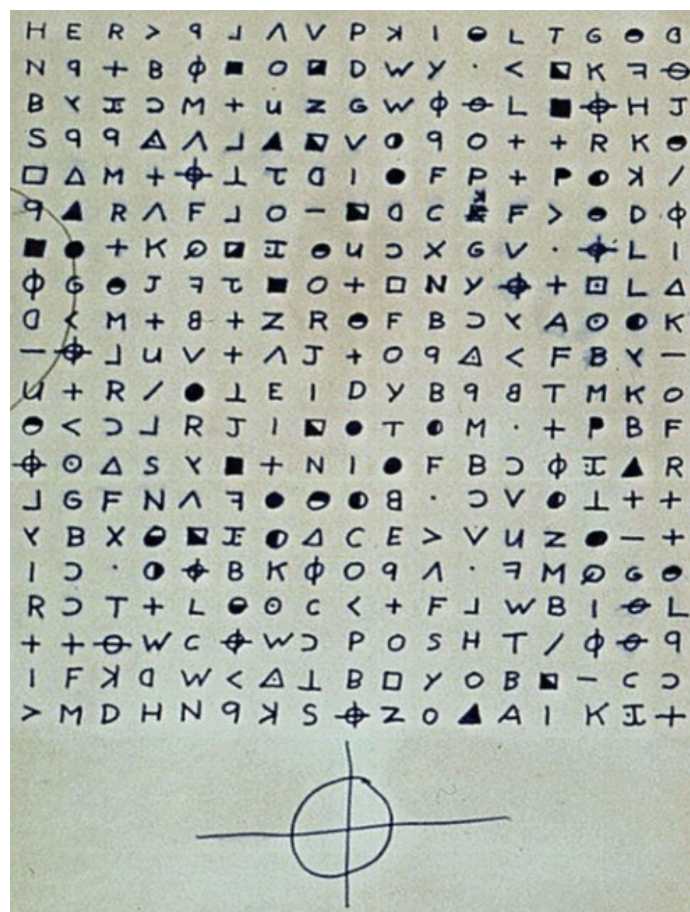 H E R > ꟼ ⅃ Λ V P ꓘ I ◒ L T G ◓ ᗡ
N ꟼ + B ϕ ■ O ◪ D W Y · < ⬕ K ꟻ ⊖
B ⅄ Ɪ Ɔ M + U Z G W ϕ ⊖ L ■ ⌖ H J
S ꟼ ꟼ ◬ Λ ⅃ ▲ ⬕ V ◑ ꟼ O + + R K ◓
□ △ M + ⌖ ⊥ τ ᗡ I ● F P + P ◐ ꓘ /
ꟼ ▲ R Λ F ⅃ O – ⬕ ᗡ C ꓘ F > ◓ D ϕ
■ ● + K ∅ ◪ Ɪ ◓ U Ɔ X G V · ⌖ L I
ϕ G ◓ J ꟻ τ ■ O + □ N Y ⌖ + ⊡ L △
ᗡ < M + 8 + Z R ◓ F B Ɔ ⅄ A ⊙ ◐ K
– ⌖ ⅃ U V + Λ J + O ꟼ ◬ < F B ⅄ –
U + R / ● ⊥ E I D Y B ꟼ 8 T M K O
◓ < Ɔ ⅃ R J I ⬕ ● T ◐ M · + P B F
⌖ ⊙ △ S ⅄ ■ + N I ● F B Ɔ ϕ Ɪ ▲ R
⅃ G F N Λ ꟻ ● ◓ ◐ 8 · Ɔ V ◐ ⊥ + +
⅄ B X ◒ ⬕ Ɪ ◐ △ C E > V U Z ● – +
I Ɔ · ◑ ⌖ B K ϕ O ꟼ Λ · ꟻ M ∅ G ◓
R Ɔ T + L ◒ ⊙ C < + F ⅃ W B I ⊖ L
+ + ⊖ W C ⌖ W Ɔ P O S H T / ϕ ⊖ ꟼ
I F ꓘ ᗡ W < ◬ ⊥ B □ Y O B ⬕ – C Ɔ
> M D H N ꟼ ꓘ S ⌖ Z O ▲ A I K Ɪ +